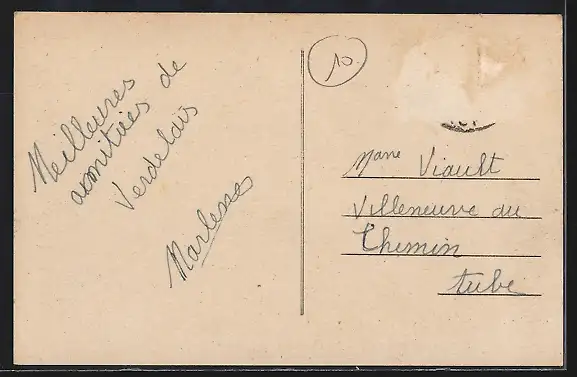 Meilleures
amitiées de
Verdelais
Marlene
10
Mme Viault
Villeneuve du
Chemin
Aube